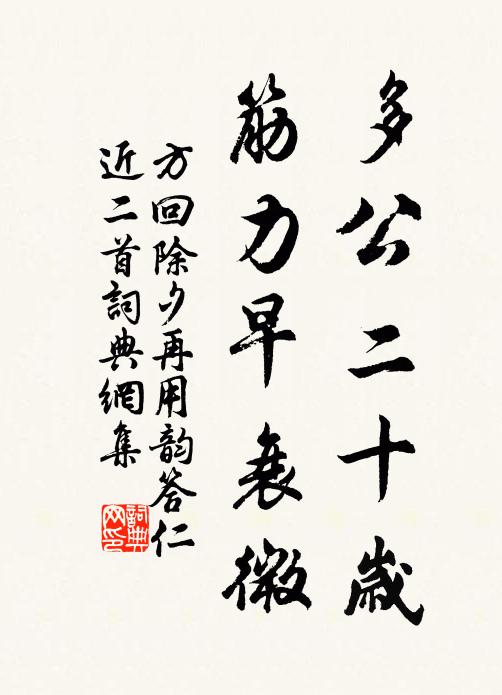 多公二十歲
筋力早衰微
方回除夕再用韵答仁
近二首詞典網集
詞典
网印